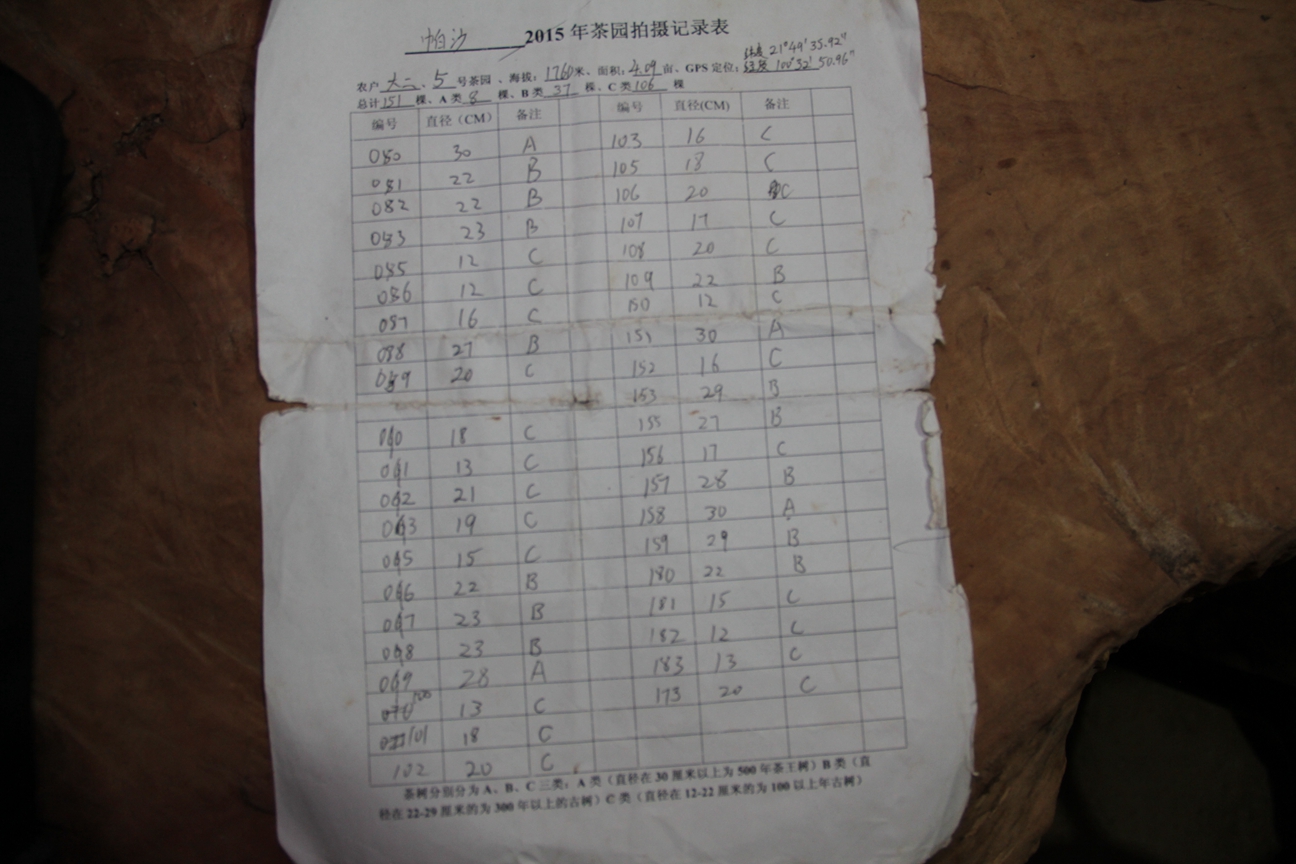 帕沙 2015 年茶园拍摄记录表
农户 大二、5 号茶园、海拔:1760米、面积:4.09亩、GPS 定位:纬度 21°49′35.92″ 经度 100°32′50.96″
总计151 棵、A 类 8 棵、B 类 37 棵、C 类 106 棵
编号 直径(CM) 备注 编号 直径(CM) 备注
080 30 A 103 16 C
081 22 B 105 18 C
082 22 B 106 20 C
083 23 B 107 17 C
085 12 C 108 20 C
086 12 C 109 22 B
087 16 C 150 12 C
088 27 B 151 30 A
089 20 C 152 16 C
153 29 B
18 C 155 27 B
13 C 156 17 C
21 C 157 28 B
19 C 158 30 A
15 C 159 29 B
22 B 180 22 B
23 B 181 15 C
23 B 182 12 C
28 A 183 13 C
100 13 C 173 20 C
101 18 C
102 20 C
茶树分别分为 A、B、C 三类:A 类(直径在 30 厘米以上为 500 年茶王树)B 类(直
径在 22-29 厘米的为 300 年以上的古树)C 类(直径在 12-22 厘米的为 100 以上年古树)